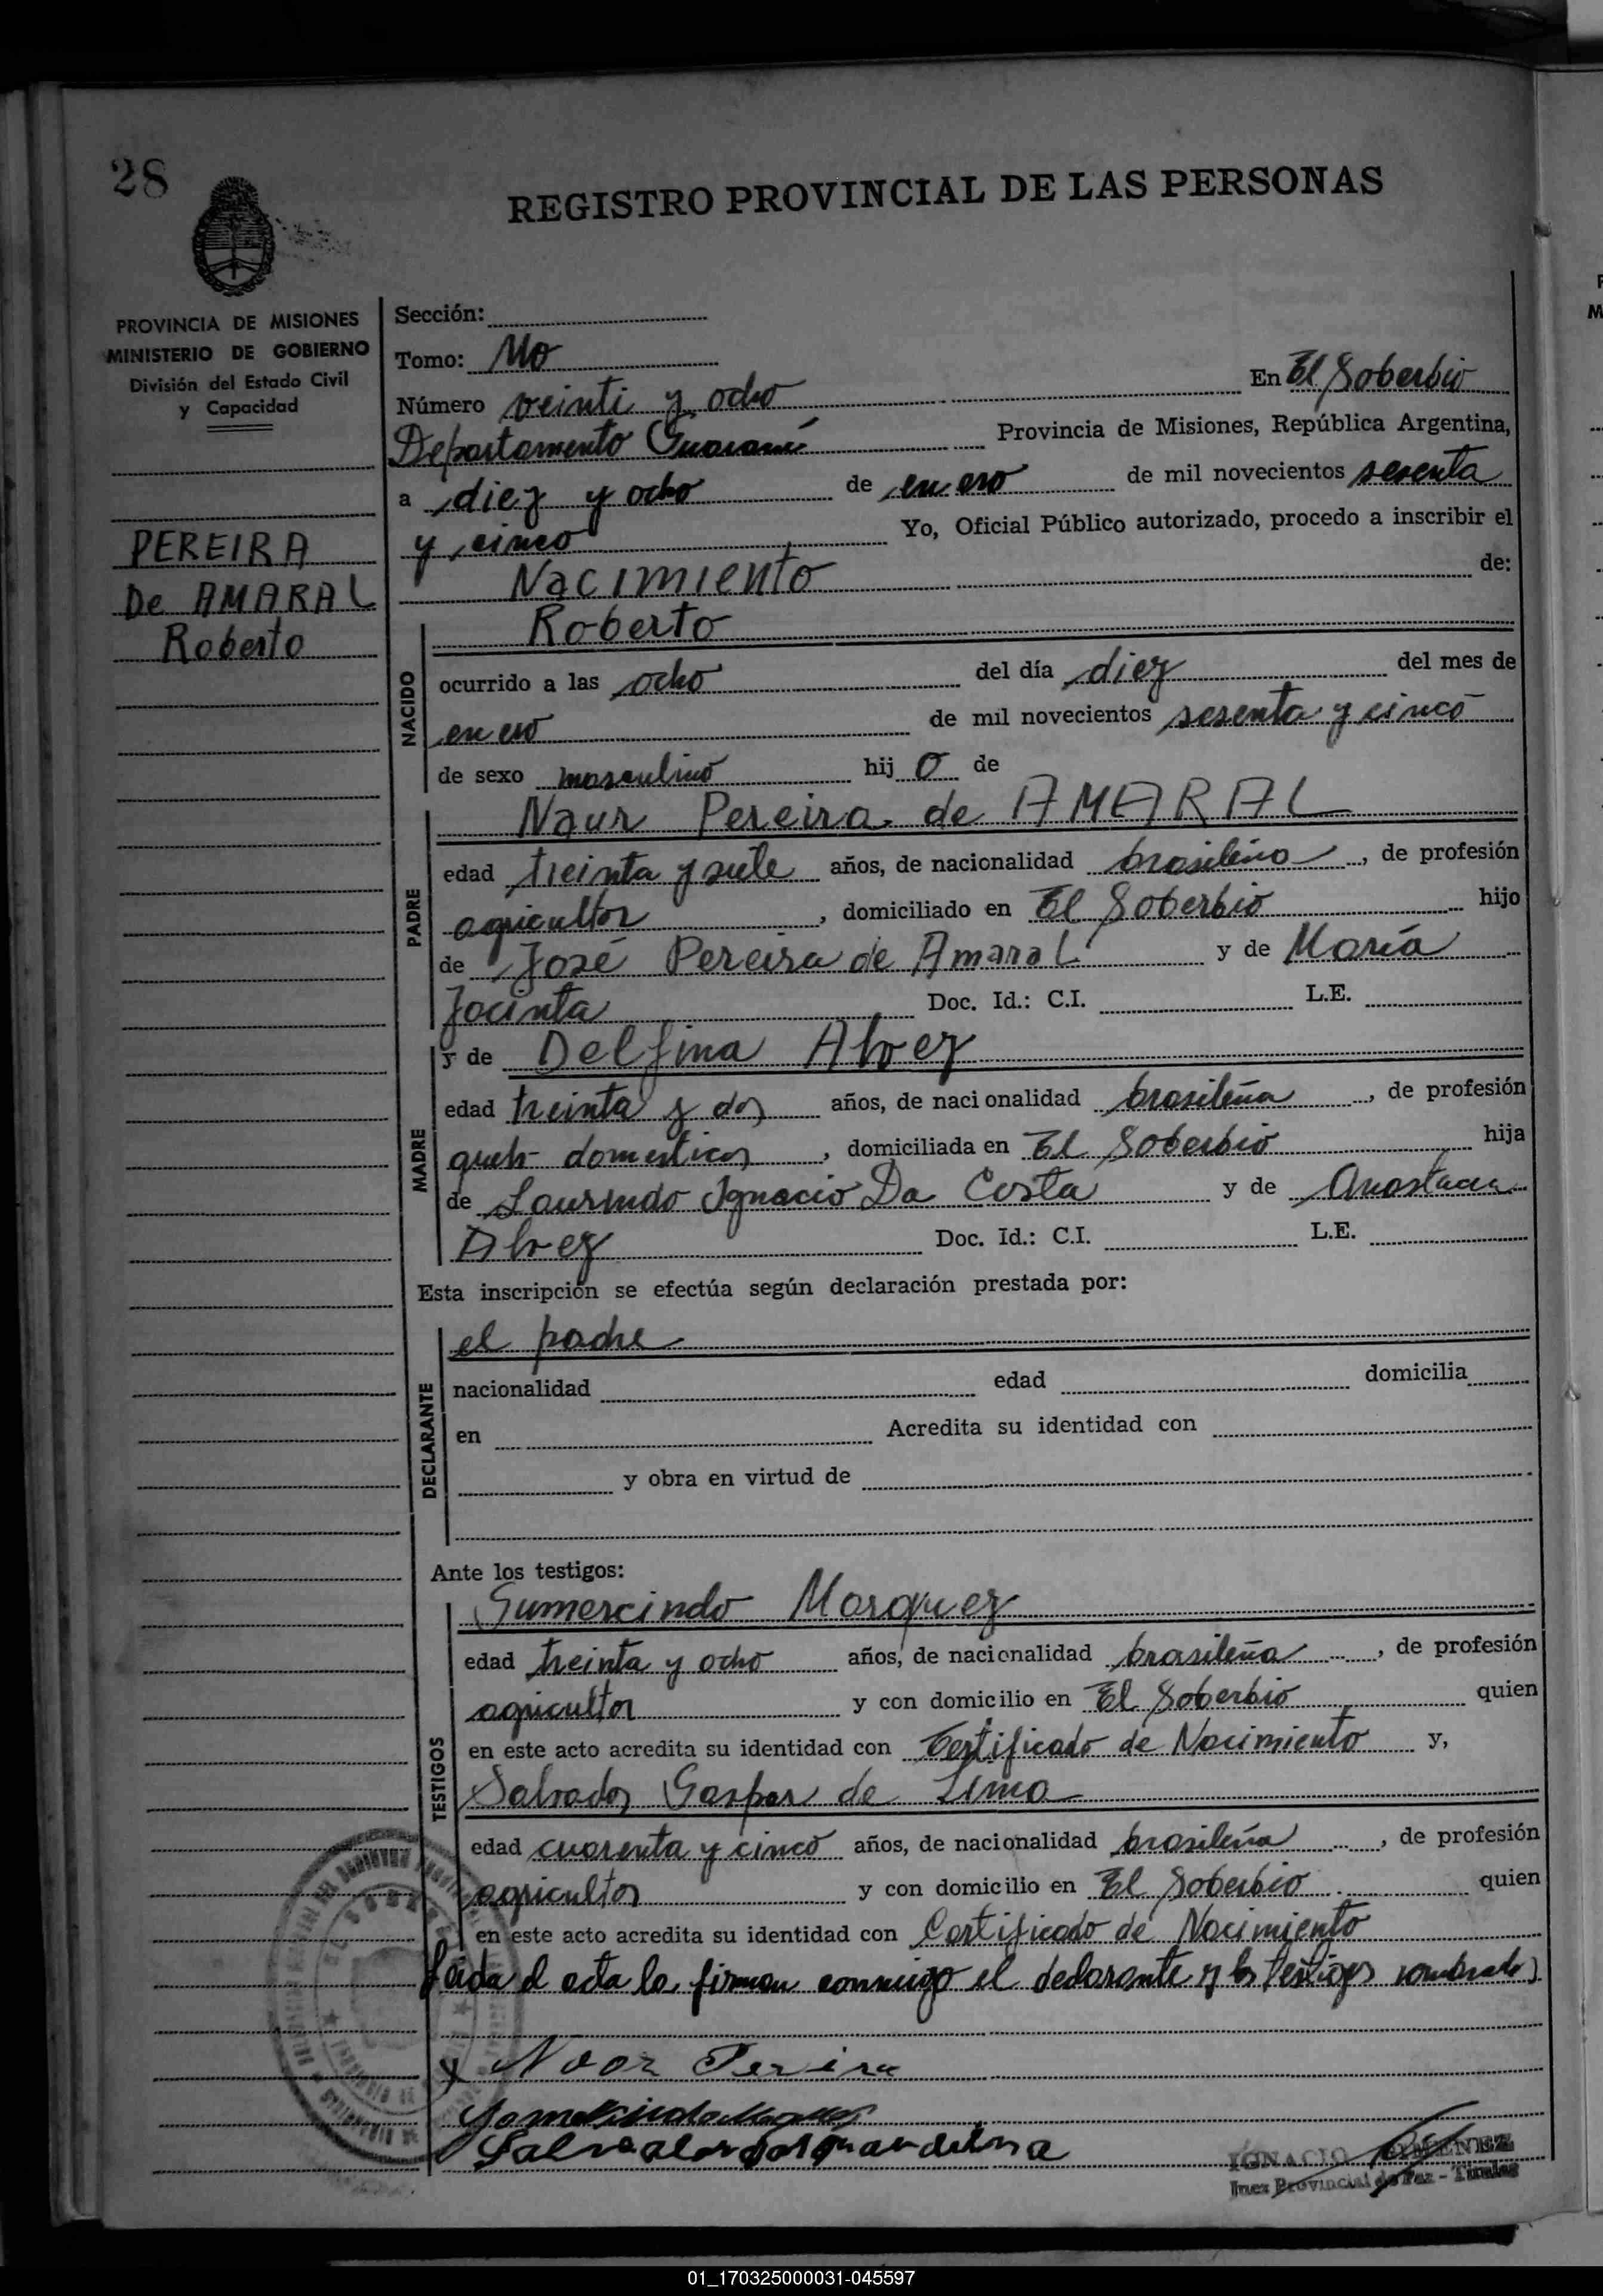 28
REGISTRO PROVINCIAL DE LAS PERSONAS
PROVINCIA DE MISIONES
MINISTERIO DE GOBIERNO
División del Estado Civil
y Capacidad
PEREIRA
De AMARAL
Roberto
Sección:
Tomo: Uno
Número veinti y ocho En El Soberbio
Departamento Guaraní Provincia de Misiones, República Argentina,
a diez y ocho de enero de mil novecientos sesenta
y cinco Yo, Oficial Público autorizado, procedo a inscribir el
Nacimiento de:
NACIDO
Roberto
ocurrido a las ocho del día diez del mes de
enero de mil novecientos sesenta y cinco
de sexo masculino hij o de
PADRE
Naur Pereira de AMARAL
edad treinta y siete años, de nacionalidad brasileño, de profesión
agricultor, domiciliado en El Soberbio hijo
de José Pereira de Amaral y de María
Jacinta Doc. Id.: C.I. L.E.
MADRE
y de Delfina Alvez
edad treinta y dos años, de nacionalidad brasileña, de profesión
queh domesticos, domiciliada en El Soberbio hija
de Laurindo Ignacio Da Costa y de Anastacia
Alvez Doc. Id.: C.I. L.E.
Esta inscripción se efectúa según declaración prestada por:
DECLARANTE
el padre
nacionalidad edad domicilia
en Acredita su identidad con
y obra en virtud de
Ante los testigos:
TESTIGOS
Gumercindo Marquez
edad treinta y ocho años, de nacionalidad brasileña, de profesión
agricultor y con domicilio en El Soberbio quien
en este acto acredita su identidad con Certificado de Nacimiento y,
Salvador Gaspar de Lima
edad cuarenta y cinco años, de nacionalidad brasileña, de profesión
agricultor y con domicilio en El Soberbio quien
en este acto acredita su identidad con Certificado de Nacimiento
Leida el acta la firman conmigo el declarante y los testigos nombrados
x Naor Pereira
IGNACIO GIMENEZ
Juez Provincial de Paz - Titular
01_170325000031-045597